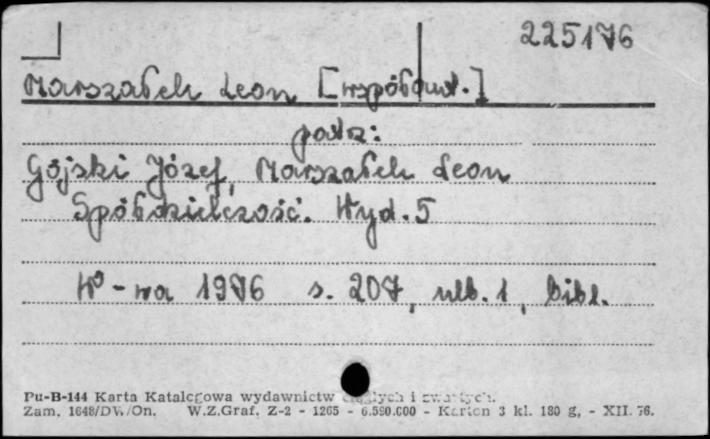 225176
Marszałek Leon [współaut.]
patrz:
Gójski Józef, Marszałek Leon
Spółdzielczość. Wyd. 5
W-wa 1976 s. 207, nlb. 1, bibl.
Pu-B-144 Karta Katalogowa wydawnictw ciągłych i zwartych.
Zam. 1648/DW/On. W.Z.Graf. Z-2 - 1265 - 6.590.000 - Karton 3 kl. 180 g, - XII. 76.